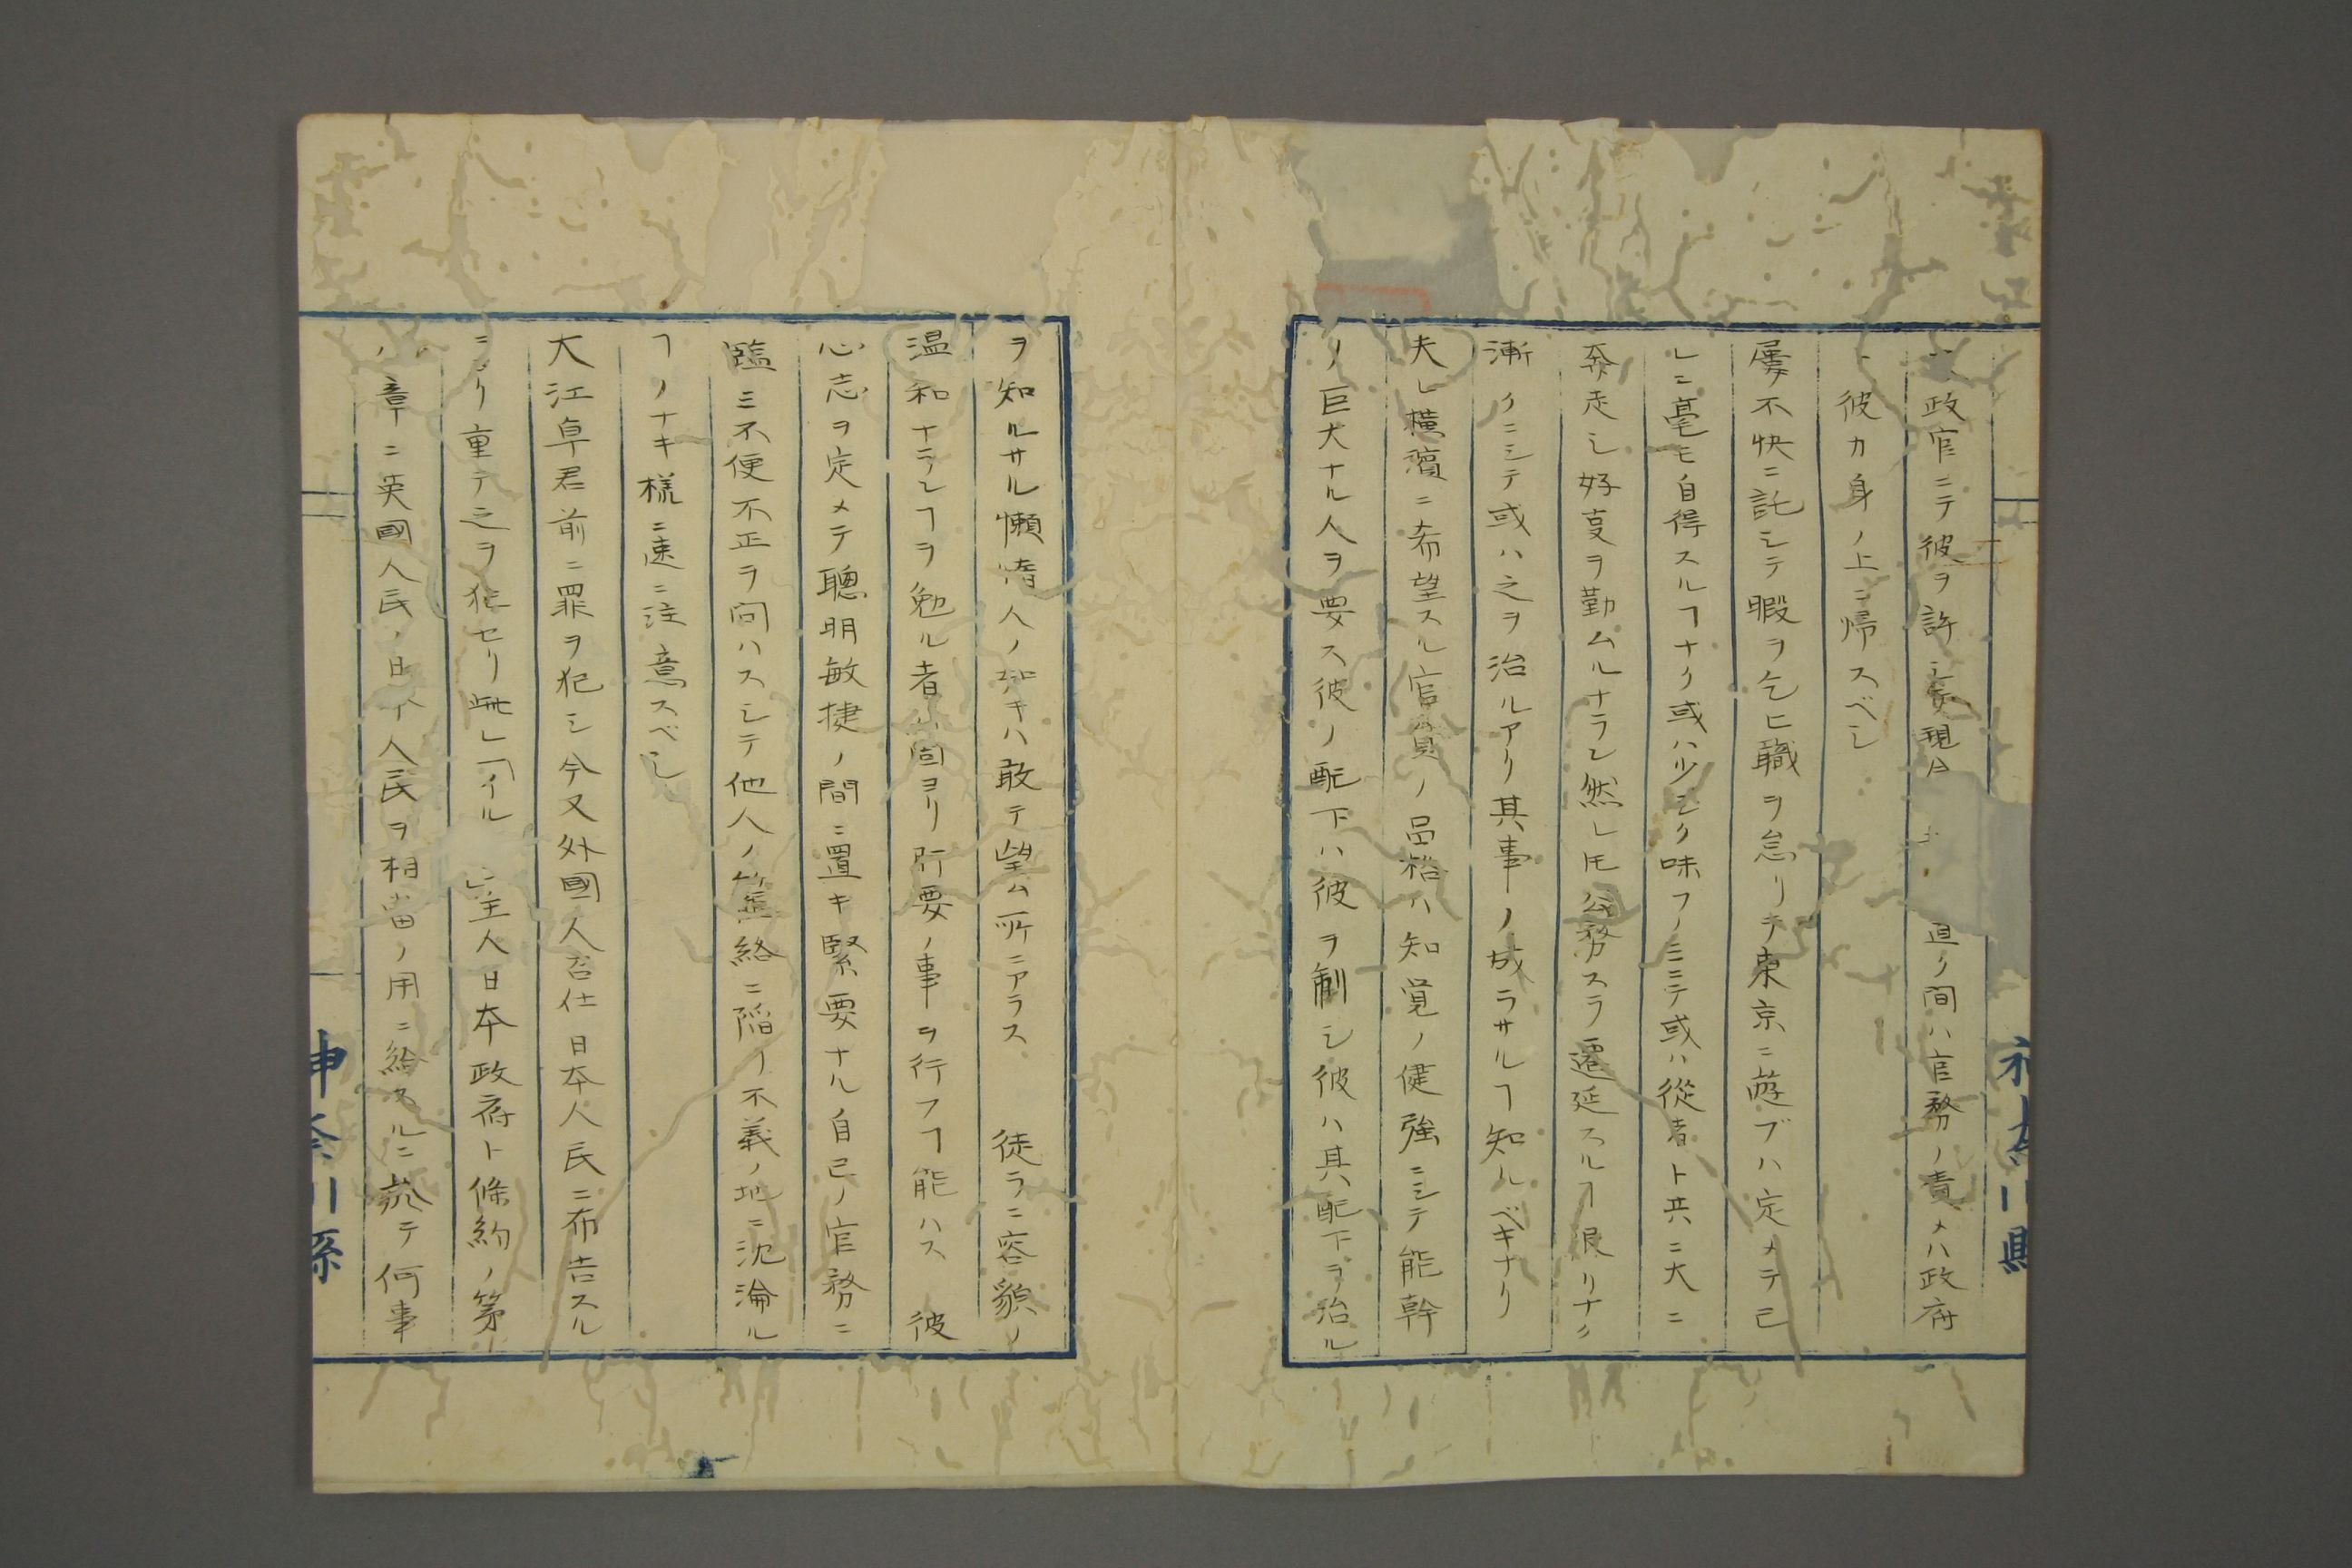 政官ニテ彼ヲ許シ現今 迫ノ間ハ官務ノ責メハ政府
彼カ身ノ上ニ帰スベシ
屡不快ニ託シテ暇ヲ乞ヒ職ヲ怠リテ東京ニ遊ブハ定メテ己
レニ毫モ自得スルヿナク或ハ少シク味フノミニテ或ハ從者ト共ニ大ニ
奔走シ好㕝ヲ勤ムルナラン然レ𪜈公務スラ遷延スルヿ限リナク
漸クニシテ或ハ之ヲ治ルアリ其事ノ成ラサルヿ知ルベキナリ
夫レ橫濱ニ希望スル官員ノ品格ハ知覚ノ健強ニシテ能幹
ノ巨大ナル人ヲ要ス彼ノ配下ハ彼ヲ制シ彼ハ其配下ヲ治ル
ヲ知ルサル懶惰人ノ如キハ敢テ望ム所ニアラス 徒ラニ容貌ノ
温和ナランヿヲ勉ル者ハ固ヨリ肝要ノ事ヲ行フヿ能ハス 彼
心志ヲ定メテ聰明敏捷ノ間ニ置キ緊要ナル自己ノ官務ニ
臨ミ不便不正ヲ問ハスシテ他人ノ籠絡ニ陥ノ不義ノ地ニ沈淪ル
ヿノナキ樣ニ速ニ注意スベシ
大江卓君前ニ罪ヲ犯シ今又外國人召仕日本人民ニ布告スル
ニヨリ重テ之ヲ犯セリ 主人日本政府ト條約ノ第
ノ章ニ英國人民ノ日本人民ヲ相當ノ用ニ給スルニ於テ何事
神奈川縣
神奈川縣